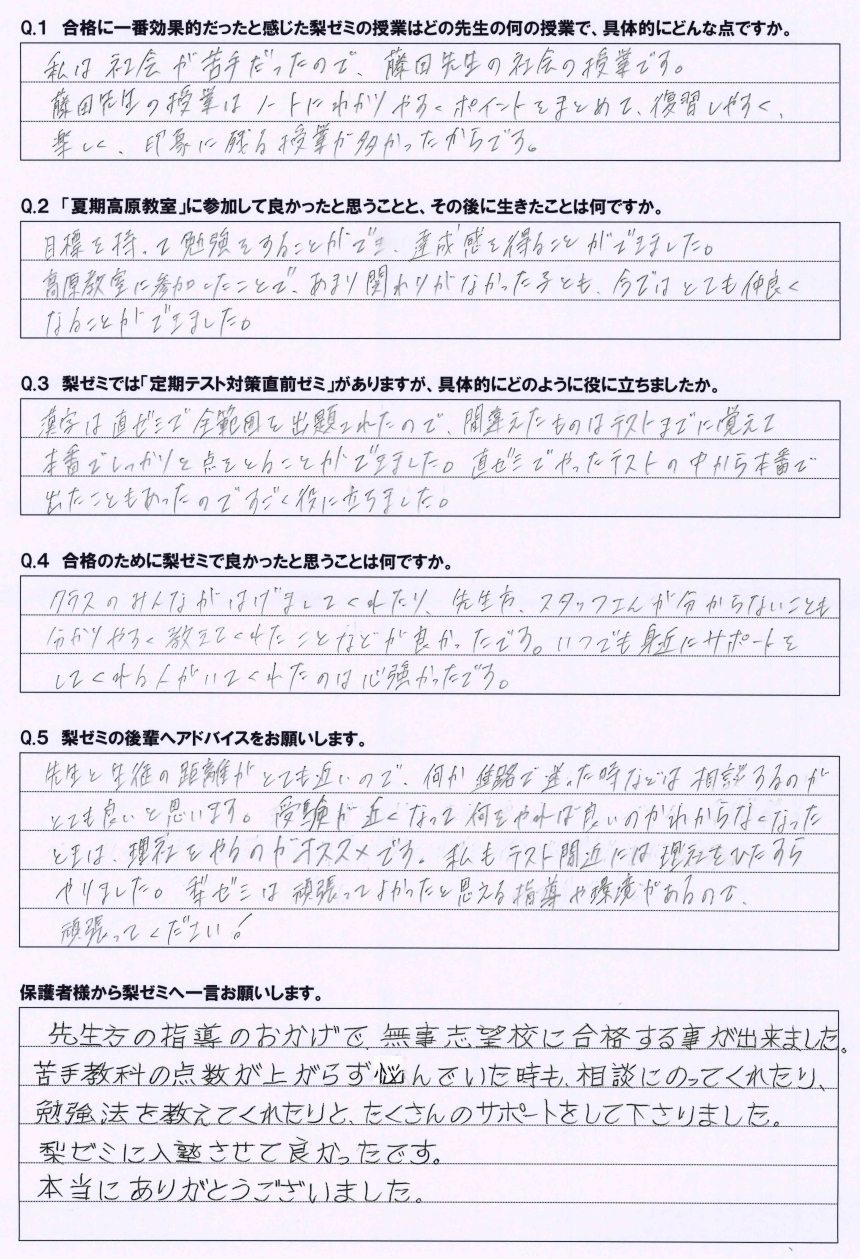 Q.1 合格に一番効果的だったと感じた梨ゼミの授業はどの先生の何の授業で、具体的にどんな点ですか。
私は社会が苦手だったので、藤田先生の社会の授業です。
藤田先生の授業はノートにわかりやすくポイントをまとめて、復習しやすく、
楽しく、印象に残る授業が多かったからです。
Q.2 「夏期高原教室」に参加して良かったと思うことと、その後に生きたことは何ですか。
目標を持って勉強をすることができ、達成感を得ることができました。
高原教室に参加したことで、あまり関わりがなかった子とも、今ではとても仲良く
なることができました。
Q.3 梨ゼミでは「定期テスト対策直前ゼミ」がありますが、具体的にどのように役に立ちましたか。
漢字は直ゼミで全範囲を出題されたので、間違えたものはテストまでに覚えて
本番でしっかりと点をとることができました。直ゼミでやったテストの中から本番で
出たこともあったのですごく役に立ちました。
Q.4 合格のために梨ゼミで良かったと思うことは何ですか。
クラスのみんながはげましてくれたり、先生方、スタッフさんが分からないことも
分かりやすく教えてくれたことなどが良かったです。いつでも身近にサポートを
してくれる人がいてくれたのは心強かったです。
Q.5 梨ゼミの後輩へアドバイスをお願いします。
先生と生徒の距離がとても近いので、何か進路で迷った時などは相談するのが
とても良いと思います。受験が近くなって何をやれば良いのかわからなくなった
ときは、理社をやるのがオススメです。私もテスト間近には理社をひたすら
やりました。梨ゼミは頑張ってよかったと思える指導や環境があるので、
頑張ってください!
保護者様から梨ゼミへ一言お願いします。
先生方の指導のおかげで、無事志望校に合格する事が出来ました。
苦手教科の点数が上がらず悩んでいた時も、相談にのってくれたり、
勉強法を教えてくれたりと、たくさんのサポートをして下さりました。
梨ゼミに入塾させて良かったです。
本当にありがとうございました。